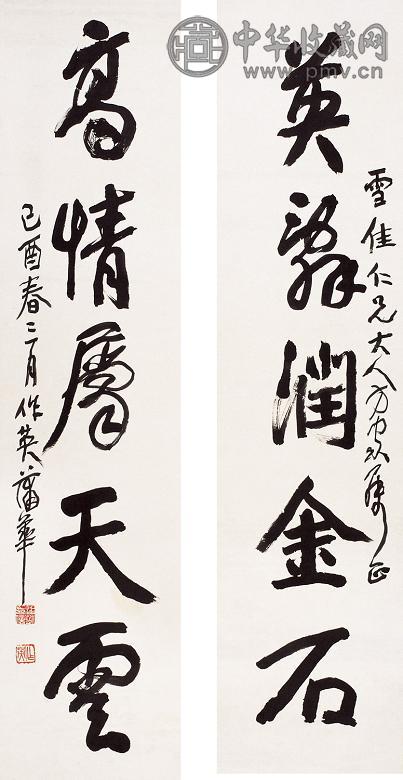 中华收藏网
www.pmv.cn
英辭潤金石
雪佳仁兄大人方家正
高情屬天雲
己酉春三月作英蒲華